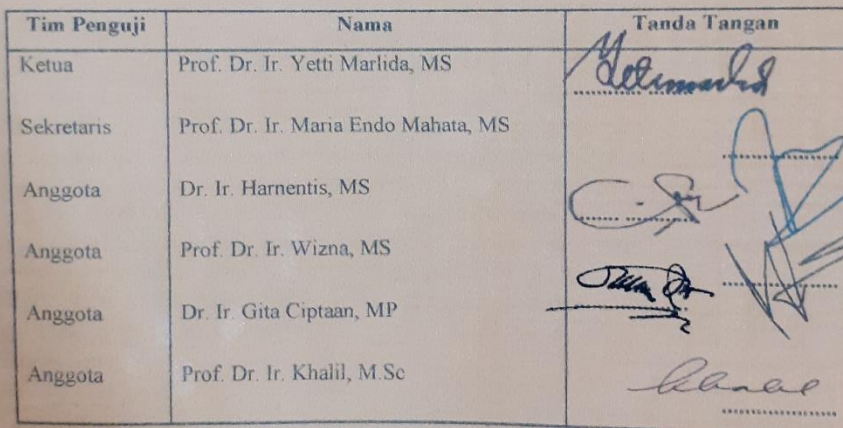 Tim Penguji Nama Tanda Tangan
Ketua Prof. Dr. Ir. Yetti Marlida, MS
Sekretaris Prof. Dr. Ir. Maria Endo Mahata, MS
Anggota Dr. Ir. Harnentis, MS
Anggota Prof. Dr. Ir. Wizna, MS
Anggota Dr. Ir. Gita Ciptaan, MP
Anggota Prof. Dr. Ir. Khalil, M.Sc